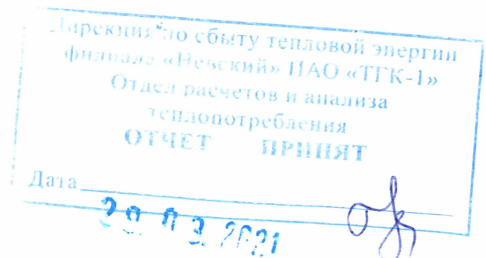 Дирекция по сбыту тепловой энергии
филиала «Невский» ПАО «ТГК-1»
Отдел расчетов и анализа
теплопотребления
ОТЧЕТ ПРИНЯТ
Дата
29 03 2021